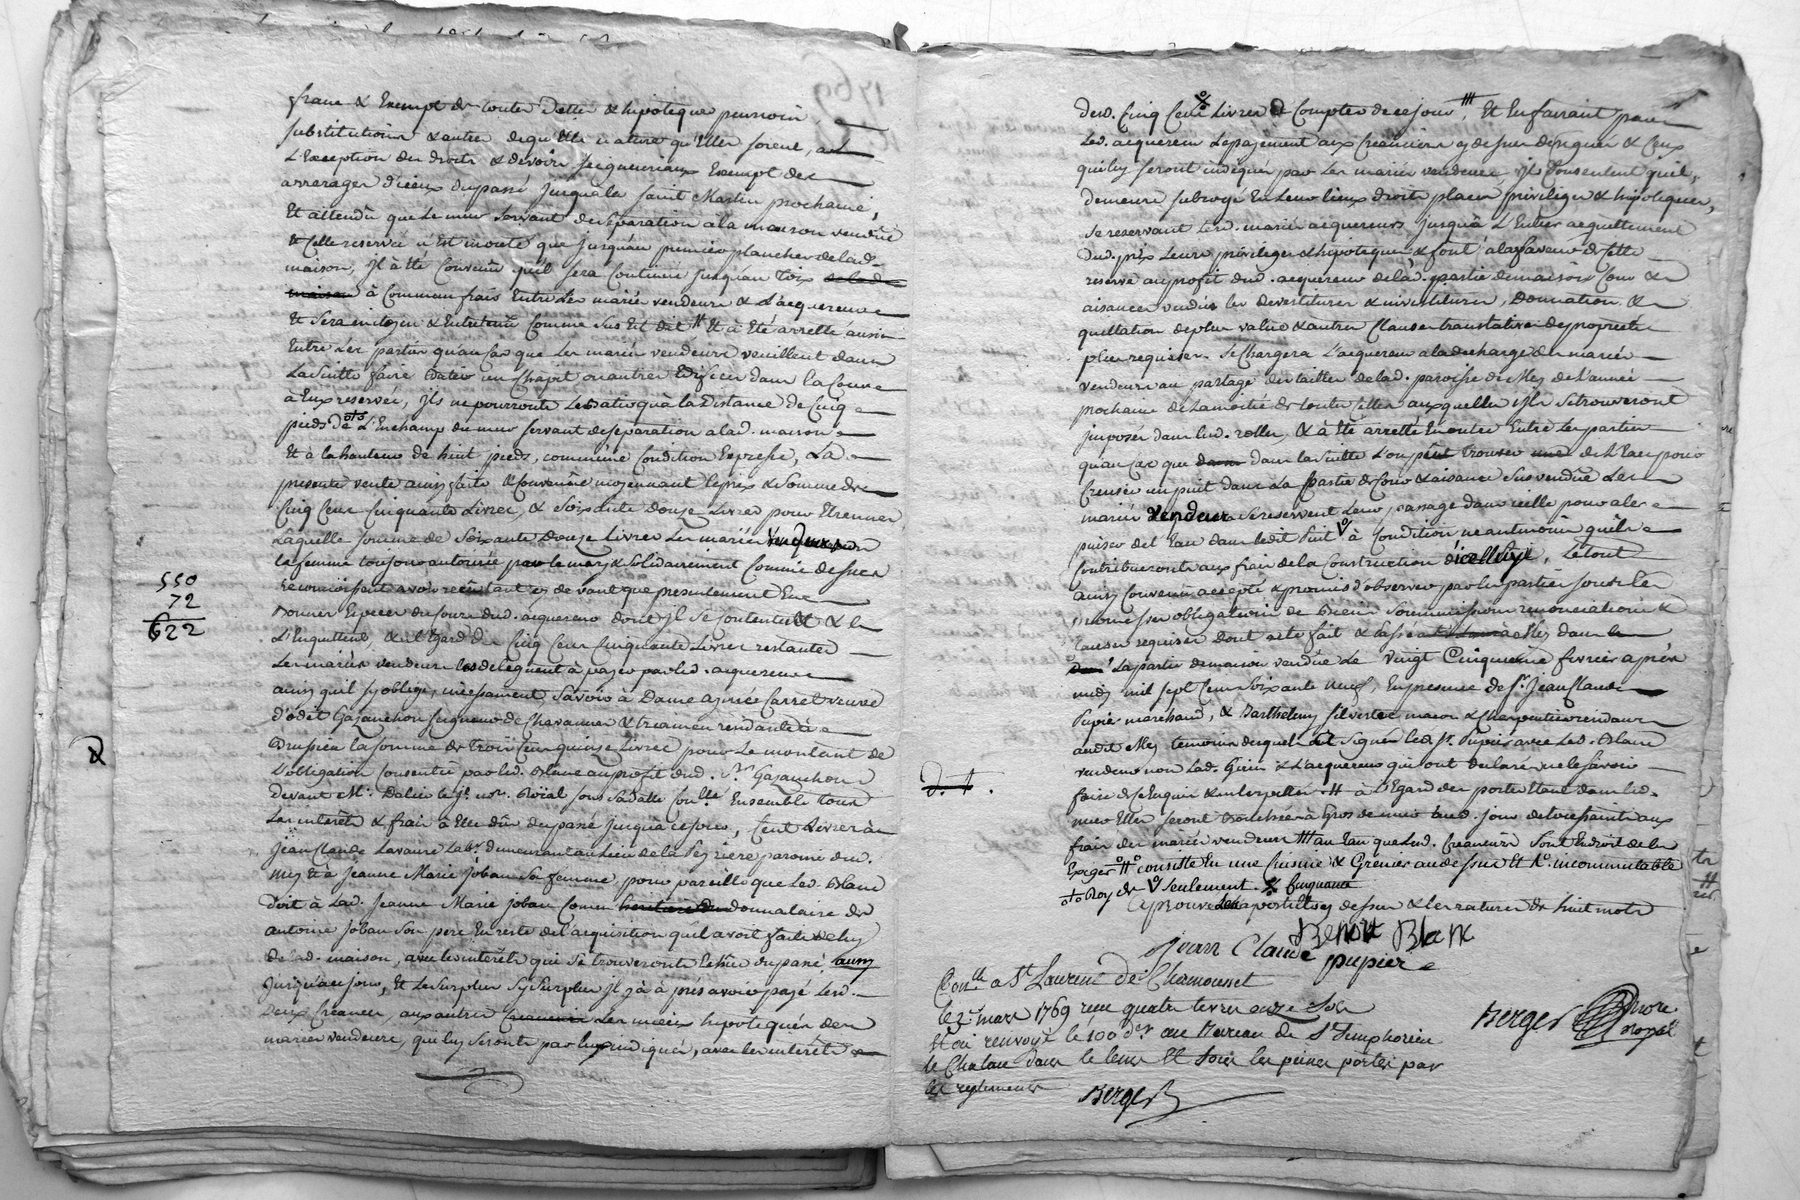 franc & Exempt de toutes Dettes & hipoteques pension
substitutions & autre de quelle nature qu'elles soient, a
L'Exception des droits & devoirs seigneuriaux Exempt des
arrerages d'iceux du passé jusqu'a la saint Martin prochaine,
Et attendu que le mur servant de separation a la maison vendue
Et Celle reservée n'Est monté que jusqu'au premier plancher de lad.
maison, il à été Convenu qu'il sera Continué jusqu'au toit
maison à Commun frais Entre Les mariés vendeurs & L'acquereur
Et sera mitoyen & Entretenu Comme sus Est dit # Et à Eté arretté aussi
Entre Les parties qu'au Cas que Les mariés vendeurs veuillent dans
La suitte faire Batir un Chapit ou autres Edifices dans la Cour
à Eux reservée, ils ne pourront Le Batir qu'à la Distance de Cinq
pieds de L'Enchamp du mur servant de separation a lad. maison
Et à la hauteur de huit pieds, comme une Condition Expresse, La
presente vente ainsy faite & Convenüe moyennant le prix & Somme de
Cinq Cent Cinquante Livres, & soixante douze Livres pour Etrennes
Laquelle somme de soixante Douze Livres Les mariés vendeurs
la femme toujours autorisée par le mary & solidairement Comme dessus
reconnoissent avoir reçu & devant que presentement En
Donner Espèces du jour dud. acquereur dont il se contentent & le
L'En quittent, & à l'Egard des Cinq Cent Cinquante Livres restantes
Les mariés vendeurs les deleguent à payer par led. acquereur
ainsy qu'il s'y oblige, incessament, Savoir à Dame Agnée Carret veuve
d'odet Gajanchon seigneur de Chavannes & Creamen rendante à
Brussieu la somme de Trois Cent quinze Livres pour Le montant de
L'obligation Consentie par led. Blanc au profit dud. Sr. Gajanchon
devant Me. Dalin le jr. nore. Roïal sous sa datte Conllé Ensemble tous
Les interêts & frais à Elle dûs du passé jusqu'à ce jour, Cent Livres à
Jean Claude Lavaure Labr. demeurant au Lieu de la Peyriere paroisse dud.
Mey & à Jeanne Marie Joban sa femme, pour pareille que led. Blanc
Doit à Lad. Jeanne Marie joban Comme donnataire de
antoine joban son pere En reste de l'acquisition qu'il avoit faite de luy
de lad. maison, avec les interêts qui se trouveront Echûs du passé
jusqu'à ce jour, Et Le surplus sy surplus il y à à près avoir payé Lesd.
deux Creances, aux autres Les mieux hipotequés des
mariés vendeurs, qui luy seront par Eux indiqués, avec les interêts
550
72
622
desd. Cinq Cent Livres à Compter de ce jour, Et En faisant par
Led. acquereur Le payement aux Creanciers cy dessus designés & Ceux
qui luy seront indiqués par Les mariés vendeurs ils Consentent qu'il
demeure subrogé En Leur lieux droits places privileges & hipoteques,
se reservant Lesd. mariés acquereurs jusqu'à L'Entier acquittement
Dud. prix Leurs privileges & hipoteques, & font à la faveur de Cette
reserve au profit dud. acquereur de lad. partie de maison Cour &
aisances vendües les devestitures & investitures, Donnation &
quittation de plus value & autres Clauses translatives de proprieté
plus requises. se Chargera L'acquereur a la decharge des mariés
vendeurs au partage des tailles de lad. paroisse de Mey de L'année
prochaine de la moitié de toutes Celles auxquelles ils se trouveront
jmposés dans les d. rolles, & à Eté arretté En outre Entre les parties
qu'au Cas que dans la suitte L'on peut trouver de L'Eau pour
Creuser un puit dans La partie de Cour & aisances sus vendüe Les
mariés vendeurs se reservent Leur passage dans icelle pour aler
puiser de L'Eau dans ledit puit à Condition neantmoins qu'ils
Contribueront aux frais de la Construction d'icelluy, Le tout
ainsy Convenu accepté & promis d'observer par les parties sous les
promesses obligations de biens soumissions renonciations &
Clauses requises dont acte fait & passé à Mey dans
La partie de maison vendüe Le vingt Cinquieme fevrier après
midy mil sept Cent soixante neuf, En presence de Sr. Jean Claude
Pupier marchand, & Barthelemy silvestre macon & Charpentier rendans
audit Mey temoins desquels a signé led. Sr. Pupier avec Led. Blanc
vendeur non Lad. Girin & L'acquereur qui ont declaré ne le savoir
faire de ce Enquis & interpellés. # à L'Egard des portes Etant dans led.
mur Elles seront bouchées à Gros de mur aud. jour de toussaint aux
frais des mariés vendeurs # au tau que Lesd. Creanciers sont En droit de les
Exiger #° consiste En une Cuisine & Grenier au dessus Et incommutable
seulement. Cinquante
aprouvé Les apostilles cy dessus & Les ratures de huit mots
Benoit Blanc
jean Claude pupier
Berger nore royal
Conllé a St. Laurent de Chamousset
le 2e. mars 1769 reçu quatre livres onze sols
Et ai renvoyé le 100 der. au Bureau de St. Simphorien
le Chateau dans le tems Et sous les peines portés par
les reglements
Berger